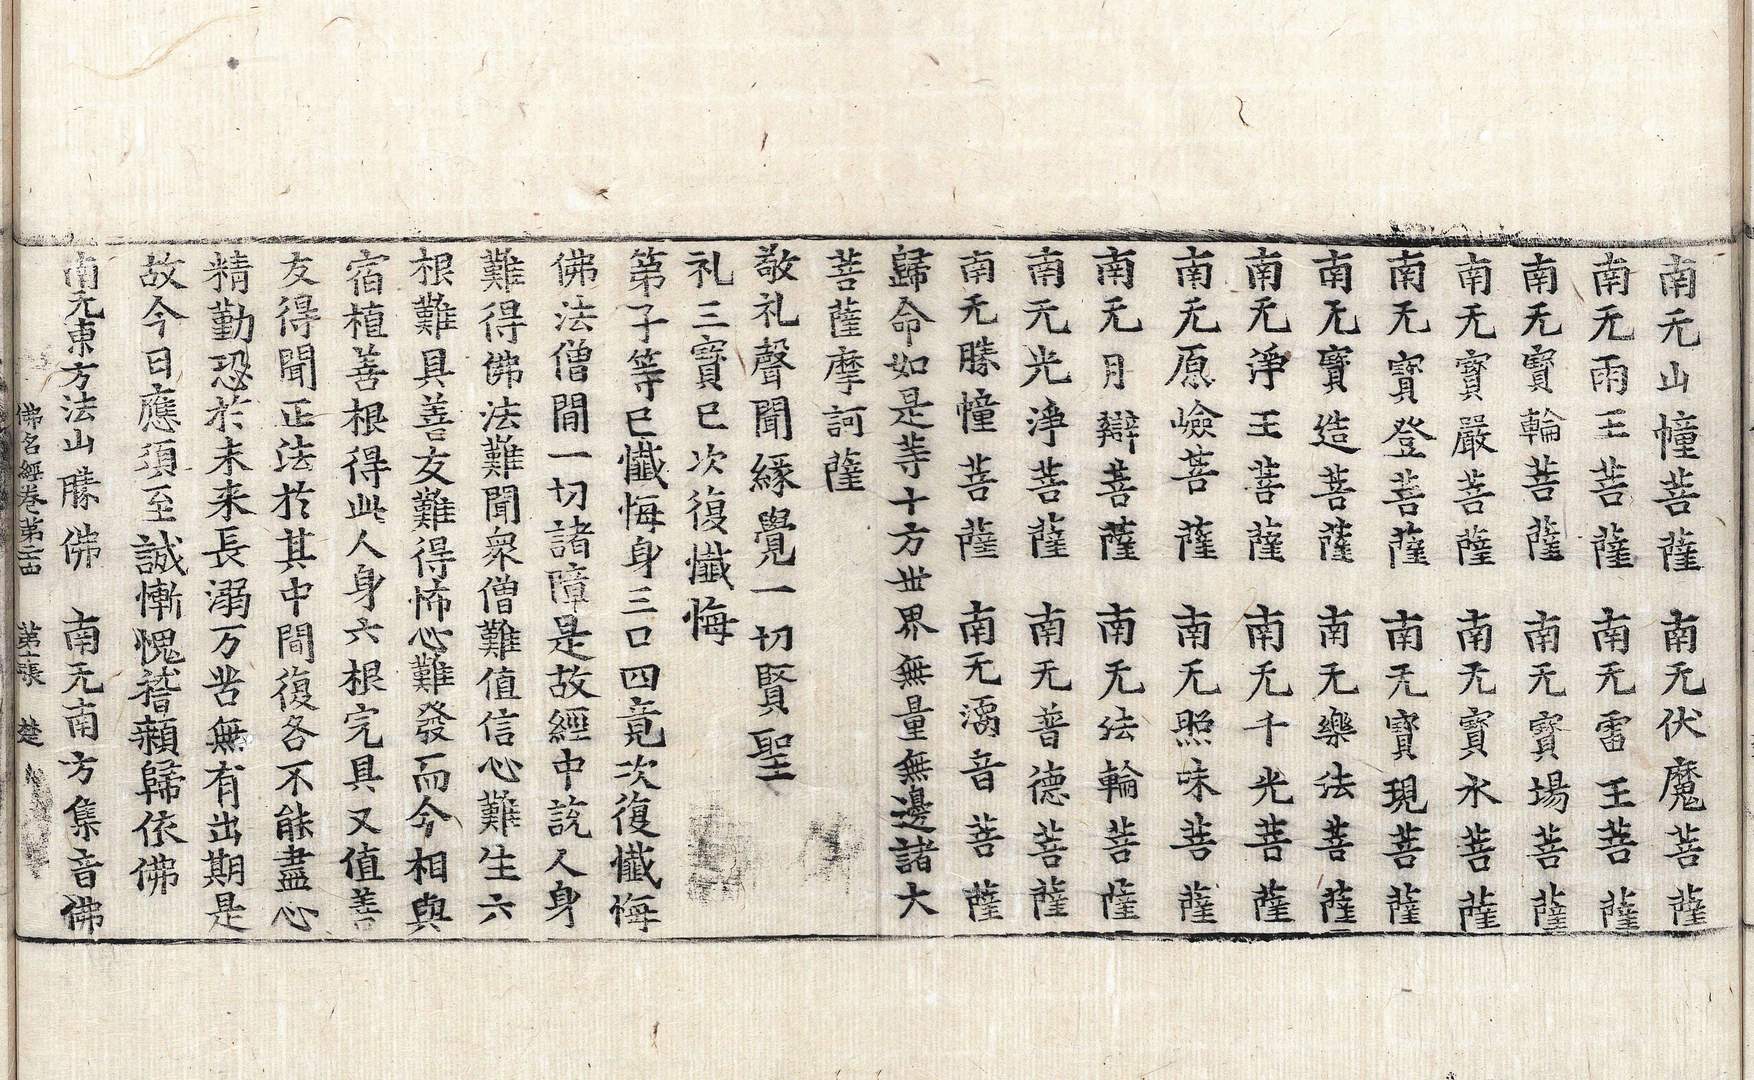 南无山幢菩薩　南无伏魔菩薩
南无雨王菩薩　南无雷王菩薩
南无寶輪菩薩　南无寶場菩薩
南无寳嚴菩薩　南无寳水菩薩
南无寶登菩薩　南无寶現菩薩
南无寶造菩薩　南无樂法菩薩
南无淨王菩薩　南无千光菩薩
南无原嶮菩薩　南无照味菩薩
南无月辯菩薩　南无法輪菩薩
南无光淨菩薩　南无普德菩薩
南无勝幢菩薩　南无濡音菩薩
歸命如是等十方世界無量無邊諸大
菩薩摩訶薩
敬礼聲聞緣覺一切賢聖
礼三寶已次復懺悔
第子等已懺悔身三口四竟次復懺悔
佛法僧間一切諸障是故經中說人身
難得佛法難聞眾僧難值信心難生六
根難具善友難得怖心難發而今相與
宿植善根得此人身六根完具又值善
友得聞正法於其中間復各不能盡心
精勤恐於未来長溺万苦無有出期是
故今日應須至誠慚愧䅲顙歸依佛
南无東方法山勝佛　南无南方集音佛
佛名經卷第　第　張　楚